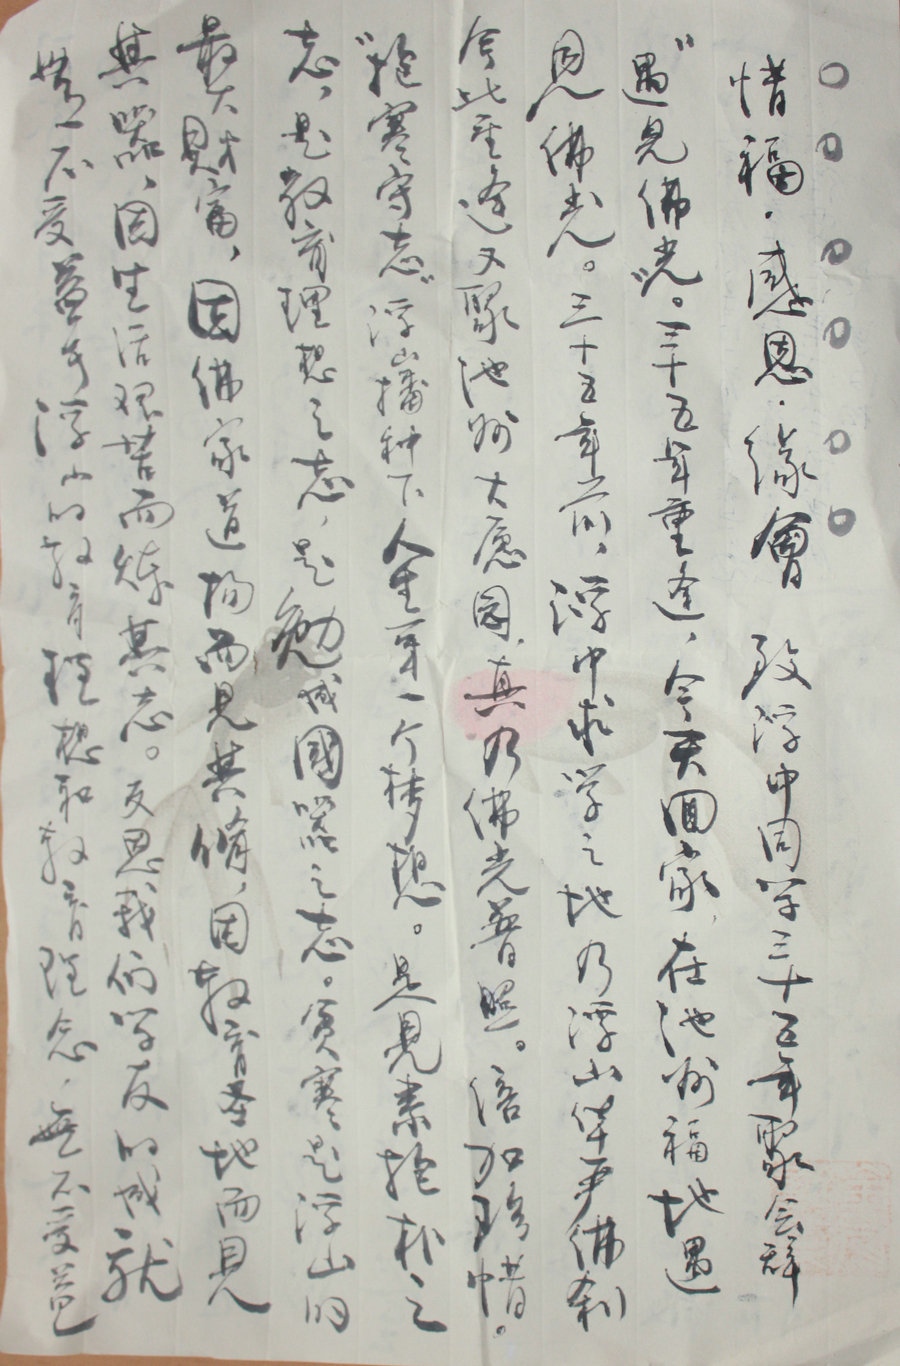 惜福·感恩·缘會 致浮中同学三十五年聚会群
“遇見佛光”。三十五年重逢，今天回家，在池州福地遇
見佛光。三十五年前，浮中求学之地乃浮山华严佛刹
今此重逢又聚池州大愿园，真乃佛光普照。倍加珍惜。
“抱寒守志”浮山播种下人生第一个梦想。是見素抱朴之
志，是教育理想之志，是勉成國器之志。貧寒是浮山的
最大財富，因佛家道场而見其脩，因教育圣地而見
其器，因生活艰苦而炼其志。反思我们学友的成就
無一不受益于浮山的教育理想和教育理念，無不受益